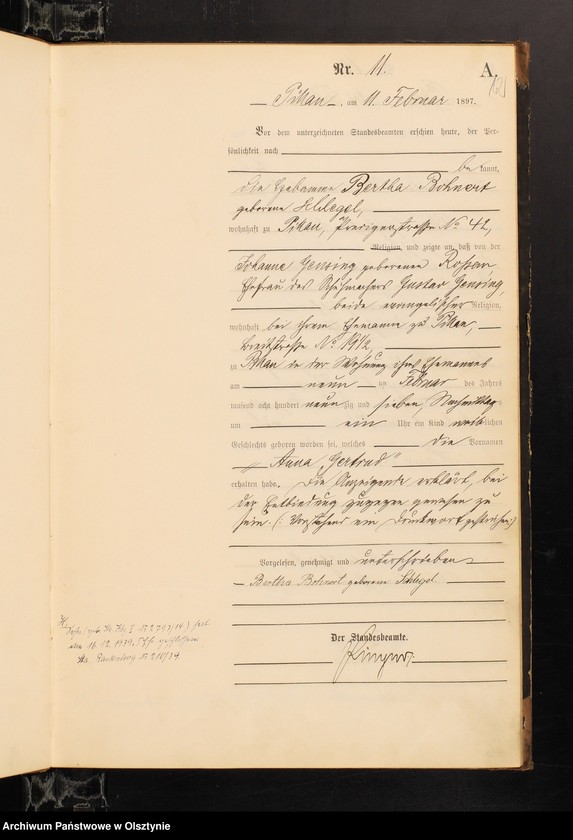 Nr. 11.
A.
Pillau, am 11. Februar 1897.
Vor dem unterzeichneten Standesbeamten erschien heute, der Per-
sönlichkeit nach
bekannt,
die Hebamme Bertha Bohnert
geborene Schlegel,
wohnhaft zu Pillau, Predigerstrasse No 42,
Religion, und zeigte an, daß von der
Johanne Gensing geborenen
Ehefrau des Schuhmachers Gustav Gensing,
beide evangelischer Religion,
wohnhaft bei ihrem Ehemanne zu Pillau,
Breitstrasse No
zu Pillau in der Wohnung ihres Ehemannes
am neun ten Februar des Jahres
tausend acht hundert neun zig und sieben, Nachmittag
um ein Uhr ein Kind weiblichen
Geschlechts geboren worden sei, welches die Vornamen
"Anna Gertrud"
erhalten habe. Die Anzeigende erklärt, bei
der Entbindung zugegen gewesen zu
sein. (: Vorstehend ein Druckwort gestrichen :)
Vorgelesen, genehmigt und unterschrieben
Bertha Bohnert geborene Schlegel.
Der Standesbeamte.
H.
am 16.12.1939
Archiwum Państwowe w Olsztynie